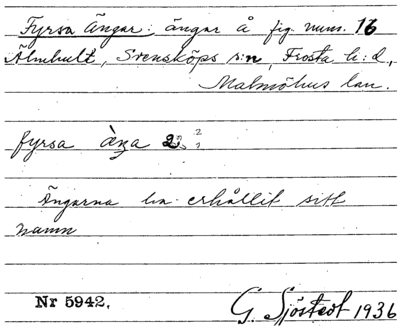 Fyrsa Ängar: ängar å fig. num. 16
Älmhult, Svensköps s:n, Frosta h:d.,
Malmöhus län.
fyrsa
Ängarna ha erhållit sitt
namn
Nr 5942.
G. Sjöstedt 1936